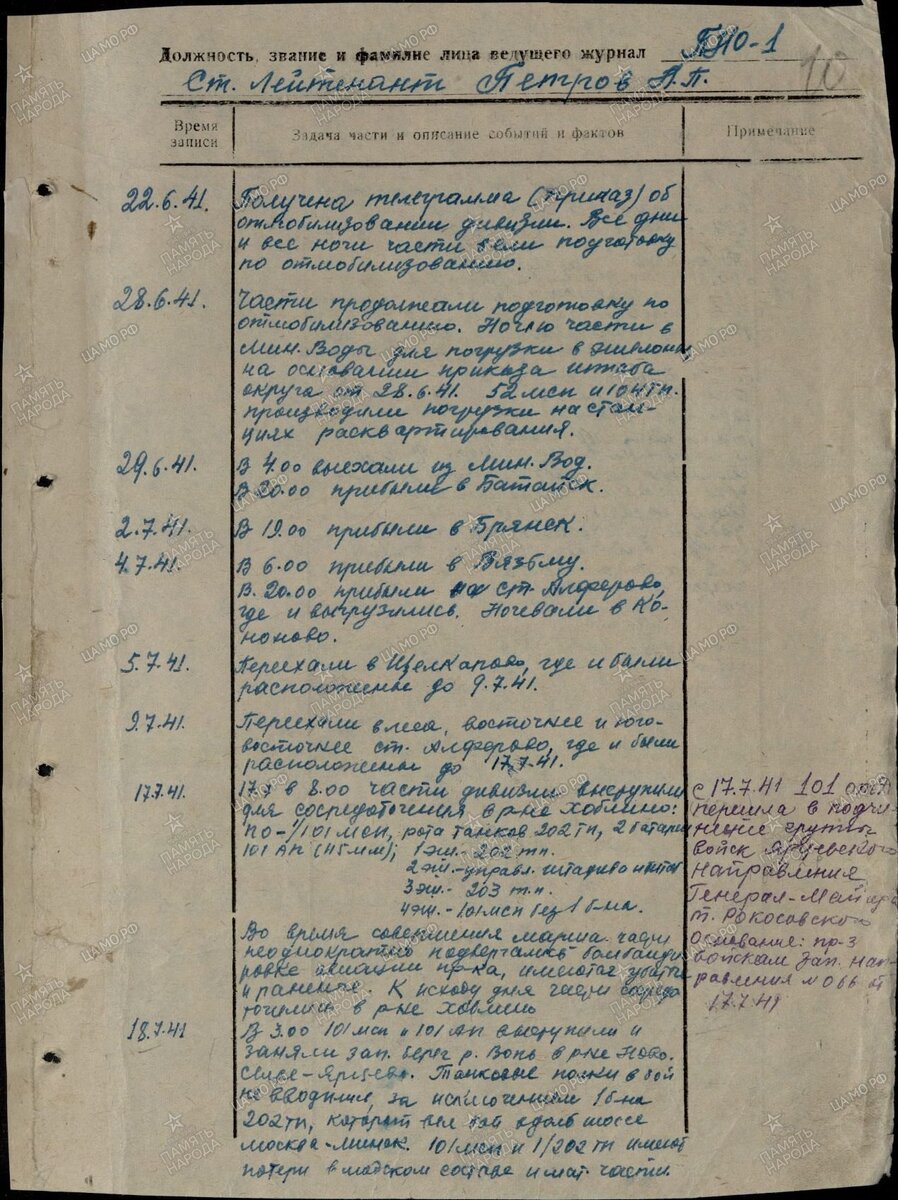 Должность, звание и фамилие лица ведущего журнал ПНО-1
10
Ст. Лейтенант Петров П.П.
Время записи
Задача части и описание событий и фактов
Примечание
22.6.41. Получена телеграмма (приказ) об
отмобилизовании дивизии. Все дни
и все ночи части вели подготовку
по отмобилизованию.
28.6.41. Части продолжали подготовку по
отмобилизованию. Ночью части в
Мин. Воды для погрузки в эшелоны,
на основании приказа штаба
округа от 28.6.41. 52 мсп и
производили погрузки на стан-
циях расквартирования.
29.6.41. В 4.00 выехали из Мин. Вод.
В 20.00 прибыли в Батайск.
2.7.41. В 19.00 прибыли в Брянск.
4.7.41. В 6.00 прибыли в Вязьму.
В 20.00 прибыли на ст. Алферово,
где и выгрузились. Ночевали в Ко-
ноково.
5.7.41. Переехали в Щелкапово, где и были
расположены до 9.7.41.
9.7.41. Переехали в леса, восточнее и юго-
восточнее ст. Алферово, где и были
расположены до 17.7.41.
17.7.41. 17.7 в 8.00 части дивизии выступили
для сосредоточения в р-не Хоблино:
ПО-1/101 мсп, рота танков 202 тп, 2 батареи
101 АП (45мм); 1 эш.- 202 тп.
2 эш.- управл. штадива
3 эш.- 203 т.п.
4 эш.- 101 мсп без 1 б-на.
Во время совершения марша части
неоднократно подвергались бомбанди-
ровке авиации пр-ка, имеются убитые
и раненые. К исходу дня части сосредо-
точились в р-не
18.7.41 В 3.00 101 мсп и 101 АП выступили и
заняли зап. берег р. Вопь в р-не Ново-
селье-Ярцево. Танковые полки в бой
не вводились, за исключением 1 б-на
202 тп, который вел бой вдоль шоссе
Москва-Минск. 101 мсп и 1/202 тп имеют
потери в людском составе и мат. части.
с 17.7.41 101
перешла в подчи-
нение группы
войск Ярцевского
направления
Генерал-Майора
т. Рокосовского
Основание: пр-з
войскам зап. нап-
равления № 066 от
17.7.41
ПАМЯТЬ НАРОДА
ЦАМО.РФ